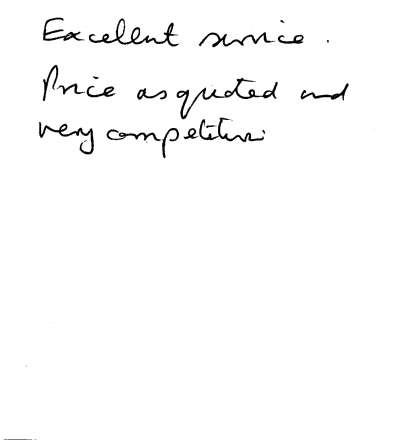 Excellent service.
Price as quoted and
very competitive